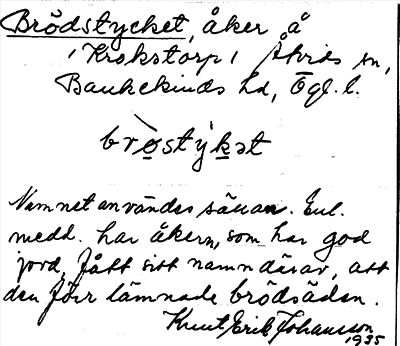 Brödstycket, åker å
Krokstorp, Åtvids sn,
Bankekinds hd, Ögl. l.
brø̱stýḵət
Namnet användes sällan. Enl.
medd. har åkern, som har god
jord, fått sitt namn därav, att
den förr lämnade brödsäden.
Knut Erik Johansson
1935